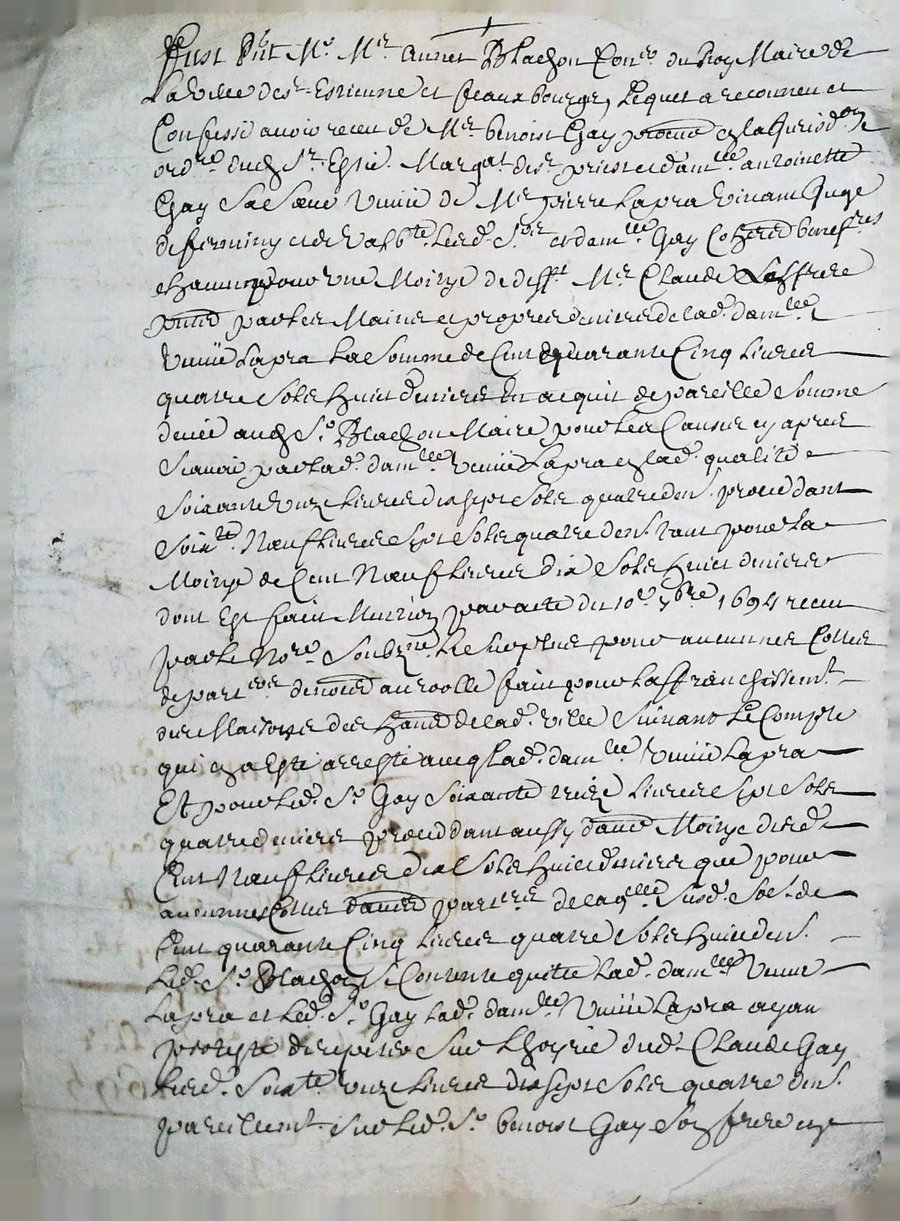 Fust Pnt Mo. Mre. Annet Blachon Conер du Roy Maire de
La ville de st. Estienne et feauxbourgs, Lequel a reconneu et
Confessé avoir receu de Mr. benoist Gay
ordre. dud. St. Estie. Margat. de st. priest et damlle. antoinette
Gay Sa Sœur Veuve de Mre pierre Lapra Vivant Juge
de firminy et de Lesd. Srs. et damlle. Gay
chacun pour une Moitye de defft. Mre. Claude Leffrere
par les Mains et propres deniers de lad. damlle.
Veuve Lapra La Somme de Cent quarante Cinq Livres
quatre Sols huict deniers En acquit de pareille Somme
deüe aud. Sr. Blachon Maire pour les Causes cy apres
Scavoir par lad. damlle. Veuve Lapra en lad. qualité
Soixante unze Livres dix sept Sols quatre den. procedant
Soixte. Neuf Livres Sept Sols quatre den. tant pour la
Moitye de Cent Neuf Livres dix Sols huict deniers
dont Est fait Mention par acte du 10e. 7bre 1694 receu
par le Nore. Soubzne. Le Surplus pour aucunes Cottes
de au roolle fait pour Laffranchissemt.
des Maisons des de lad. ville Suivant Le Compte
qui en a Esté arresté avec lad. damlle. Veuve Lapra
Et pour led. Sr. Gay Soixante treize Livres Sept Sols
quatre deniers procedant aussy Moitye desd.
Cent Neuf Livres dix Sols huict deniers que pour
aucunes Cottes de laqlle. Susd. Soe. de
Cent quarante Cinq Livres quatre Sols huict den.
Led. Sr. Blachon Se Contente quitte Lad. damlle. Veuve
Lapra et Led. Sr. Gay Lad. damlle. Veuve Lapra ayan
protesté de repeter Sur Lhoyrie dud. Claude Gay
Lesd. Soixte. unze Livres dix sept Sols quatre den.
pareillemt. Sur led. Sr. benoist Gay Son frere